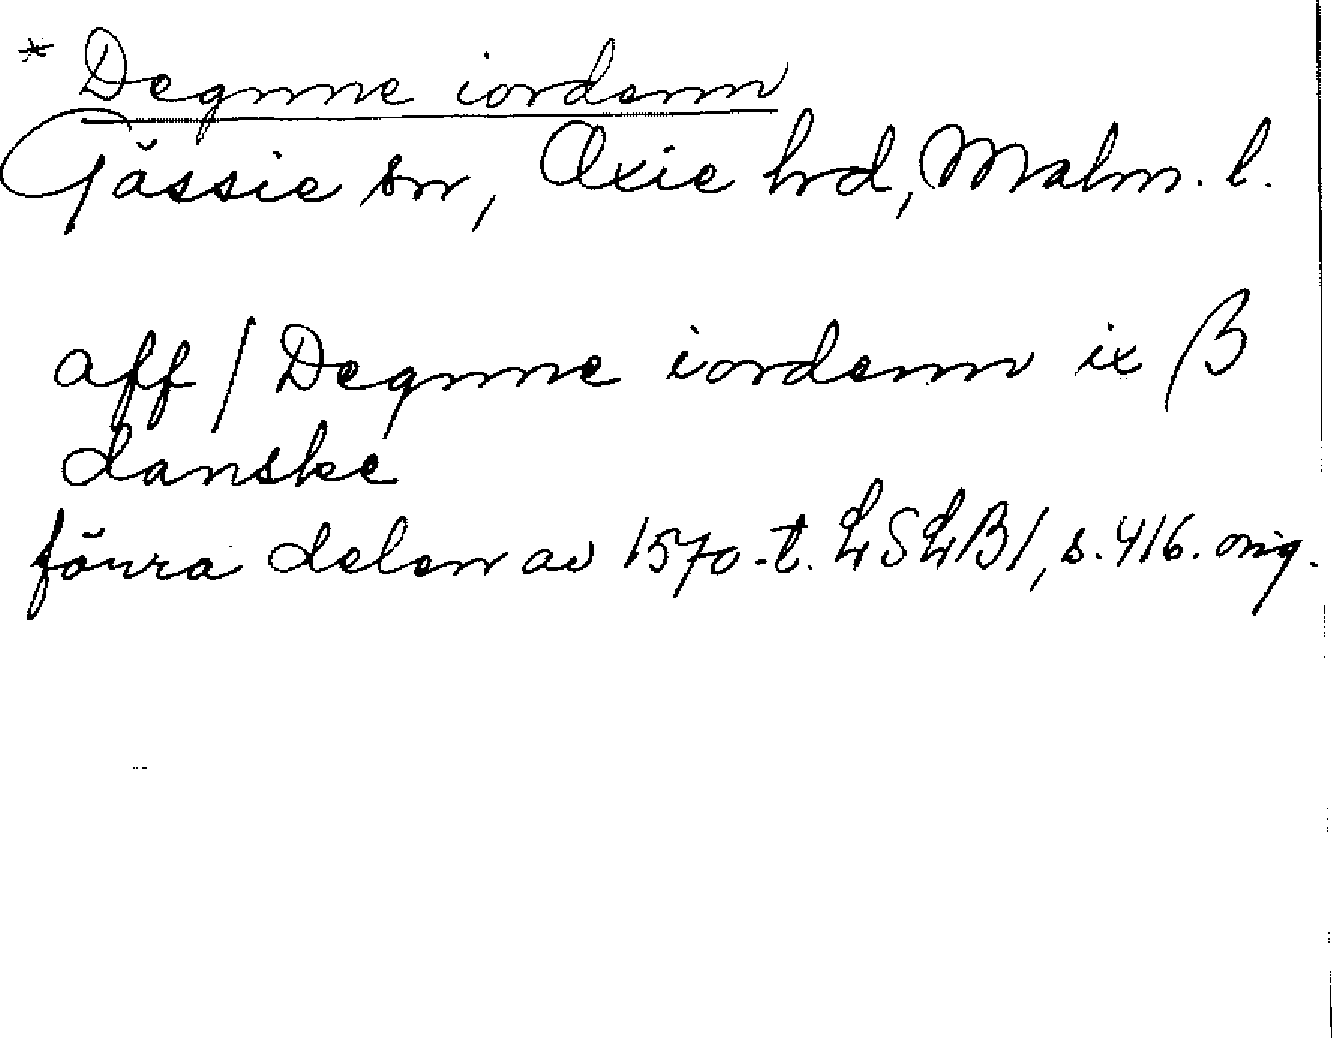 * Degnne iordenn
Gässie sn, Oxie hrd, Malm. l.
aff / Degnne iordenn ix β
danske
förra delen av 1570-t. LSLB1, s. 416. orig.